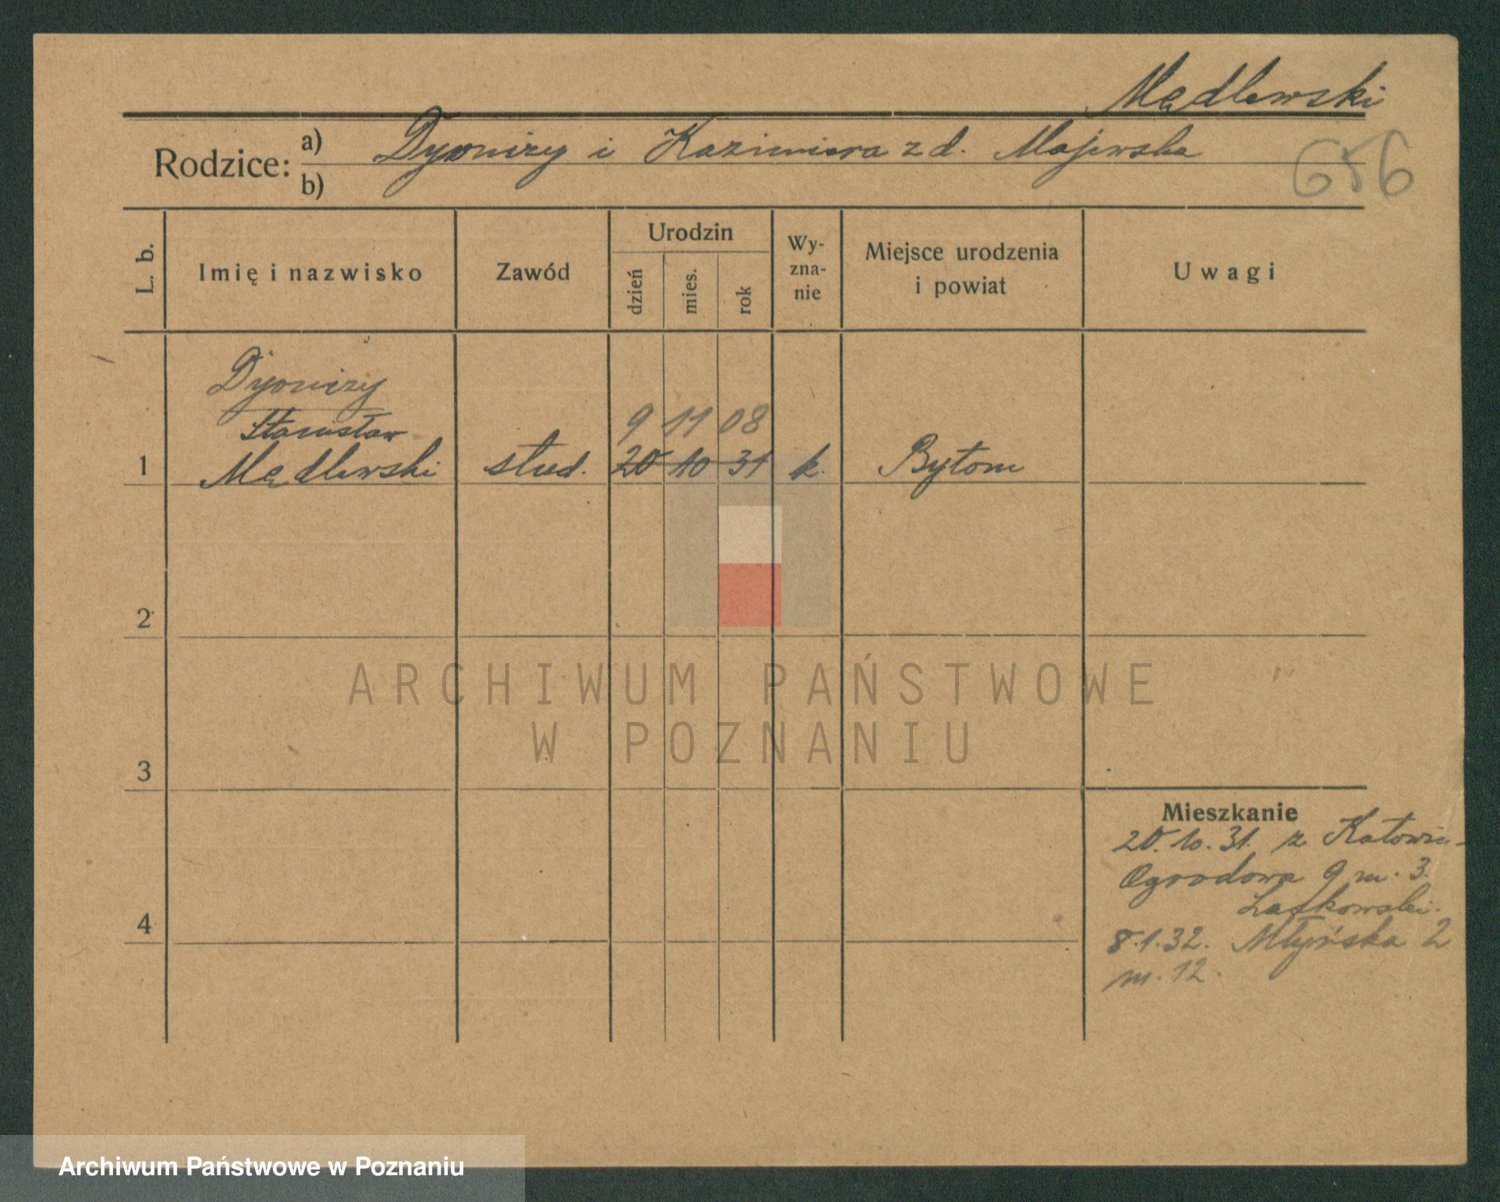 Mądlewski
Rodzice: a) Dyonizy i Kazimiera z d. Majewska
b)
656
L. b.
Imię i nazwisko
Zawód
Urodzin
dzień
mies.
rok
Wy-
zna-
nie
Miejsce urodzenia
i powiat
Uwagi
Dyonizy
Stanisław
9 11 08
1 Mądlewski stud. 20 10 31 k. Bytom
2
3
4
ARCHIWUM PAŃSTWOWE
W POZNANIU
Mieszkanie
20.10.31. z Katowic-
Ogrodowa 9 m. 3.
Laskowski.
8.1.32. Młyńska 2
m. 12.
Archiwum Państwowe w Poznaniu